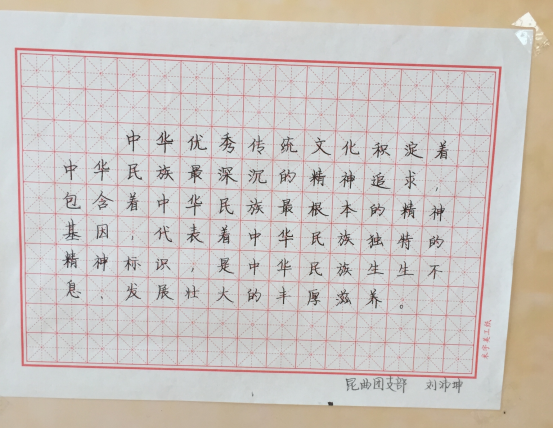 中华优秀传统文化积淀着
中华民族最深沉的精神追求，
包含着中华民族最根本的精神
基因，代表着中华民族独特的
精神标识，是中华民族生生不
息、发展壮大的丰厚滋养。
昆曲团支部 刘沛坤